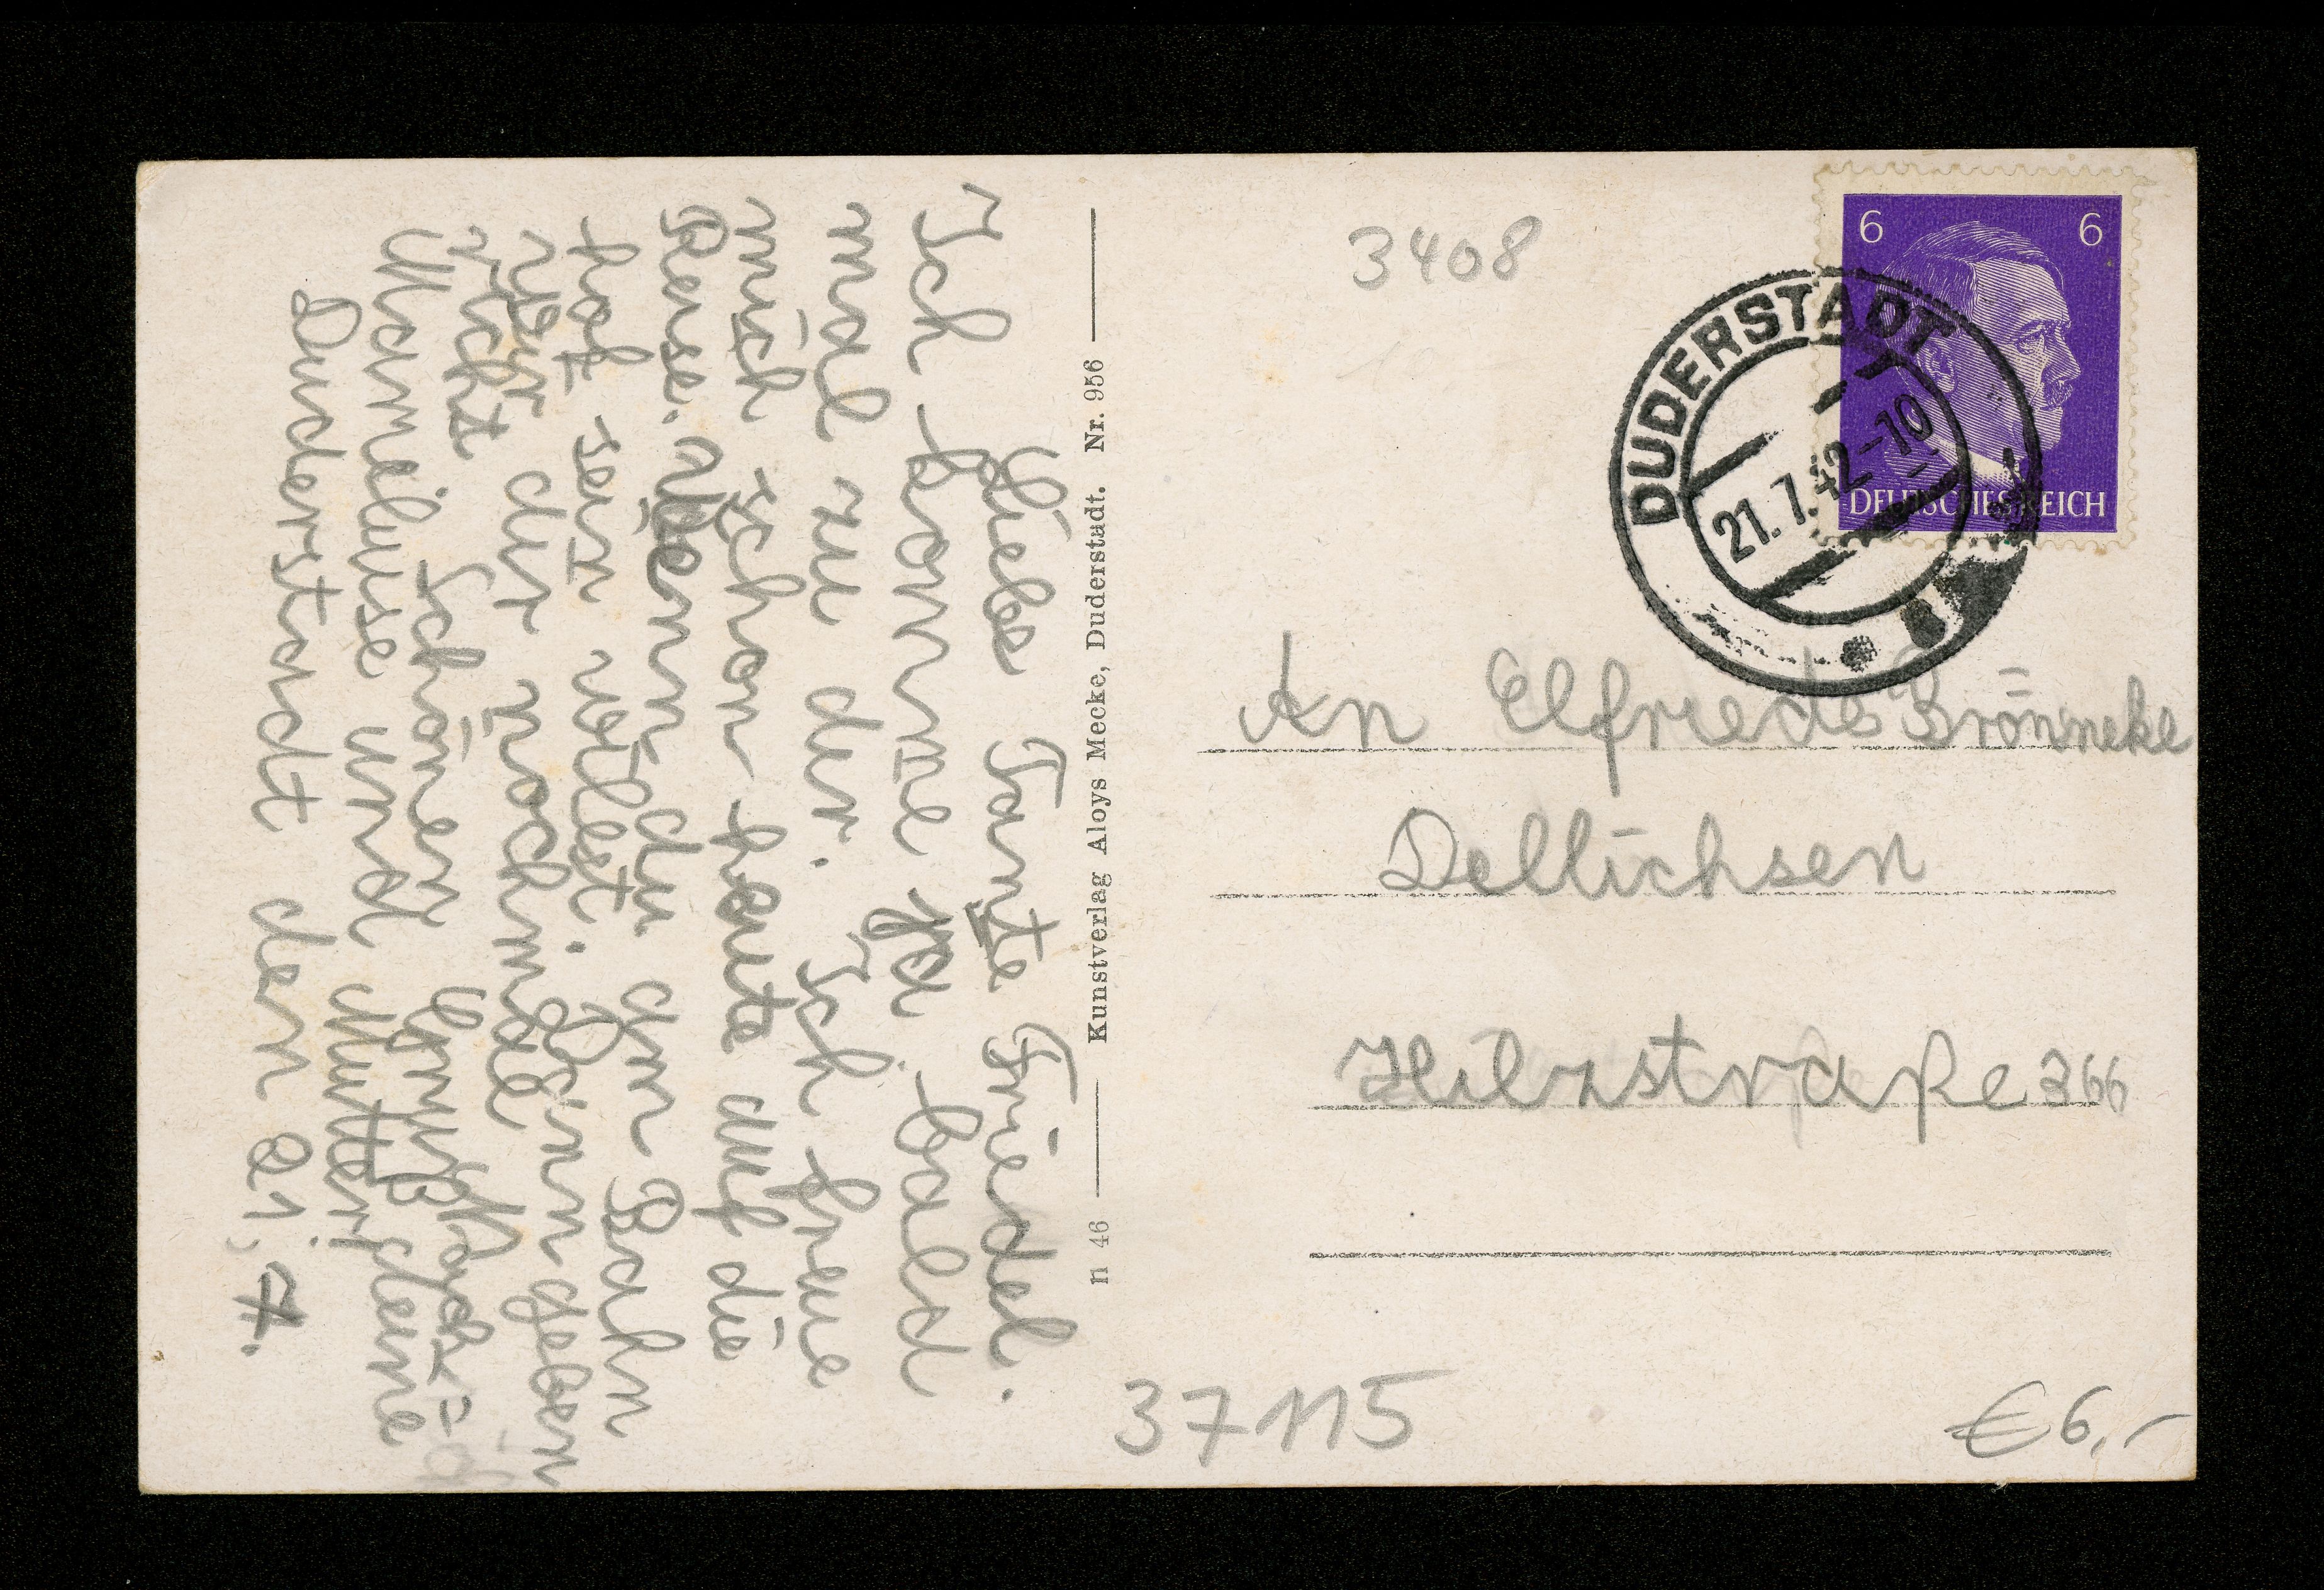 Liebe Tante Friedel.
Ich komme ja bald
mal zu dir. Ich freue
mich schon heute auf die
Reise. Wenn du am Bahn
hof sein wollest. Dann geben
wir dir nochmal
Schönen
Mameluse und Mutter deine
Duderstadt den 21. 7.
Kunstverlag Aloys Mecke, Duderstadt. Nr. 956
n 46
3408
6 6
DEUTSCHES REICH
DUDERSTADT
21.7.42-10
An Elfriede Brönneke
Dellichsen
Hilzstraße 366
37115
€ 6,-